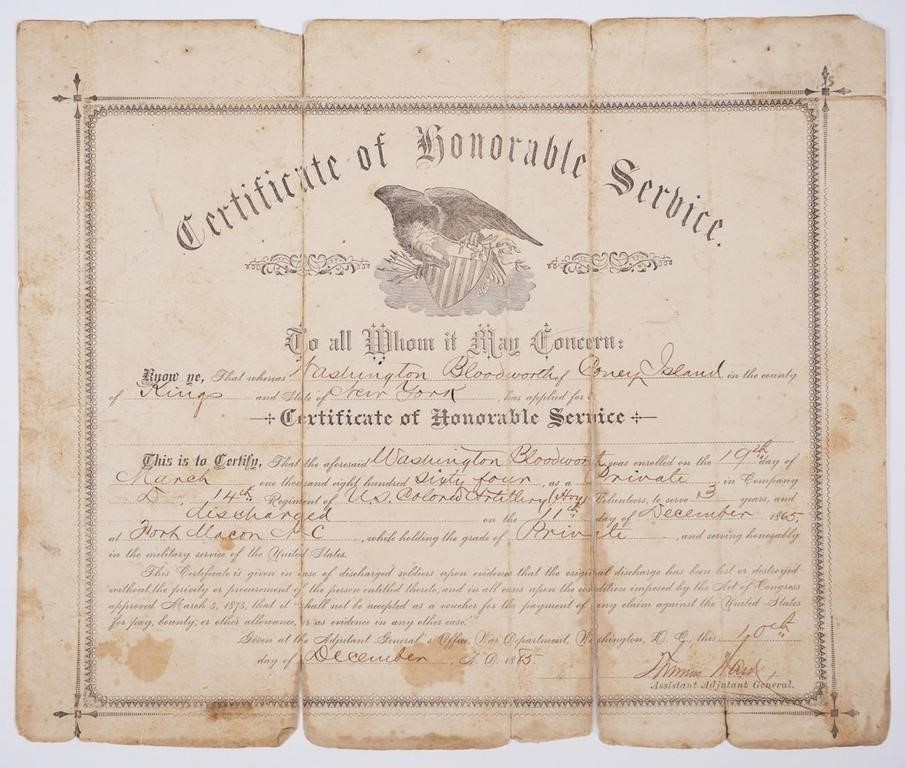 Certificate of Honorable Service.
To all Whom it May Concern:
Know ye, That whereas Washington Bloodworth of Coney Island in the county
of Kings and State of New York, has applied for
Certificate of Honorable Service
This is to Certify, That the aforesaid Washington Bloodworth was enrolled on the 19th day of
March one thousand eight hundred sixty four, as a Private in Company
14th Regiment of U.S. Colored Artillery (Hvy) Volunteers, to serve 3 years, and
discharged on the 11th day of December 1865,
at Fort Macon N C, while holding the grade of Private, and serving honorably
in the military service of the United States.
This Certificate is given in case of discharged soldiers upon evidence that the original discharge has been lost or destroyed
without the privity or procurement of the person entitled thereto, and in all cases upon the condition imposed by the Act of Congress
approved March 3, 1873, that it "shall not be accepted as a voucher for the payment of any claim against the United States
for pay, bounty, or other allowance, or as evidence in any other case."
Given at the Adjutant General's Office, War Department, Washington, D. C., this 10th
day of December, A. D. 1885.
Assistant Adjutant General.